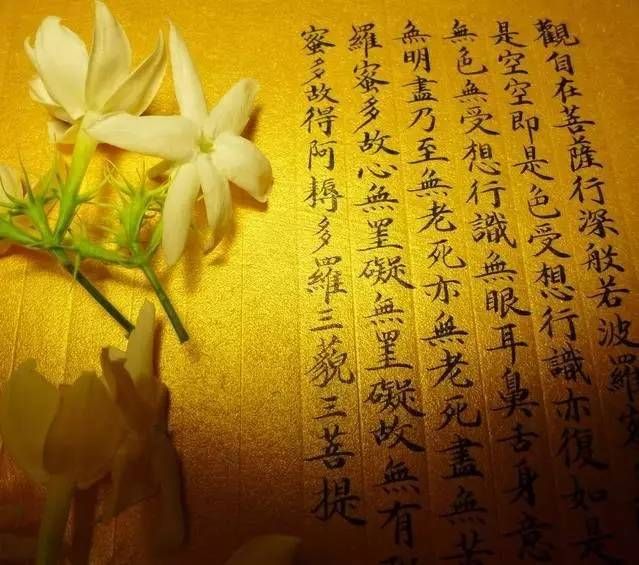 觀自在菩薩行深般若波羅蜜
是空空即是色受想行識亦復如是
無色無受想行識無眼耳鼻舌身意
無明盡乃至無老死亦無老死盡無苦
羅蜜多故心無罣礙無罣礙故無有
蜜多故得阿耨多羅三藐三菩提